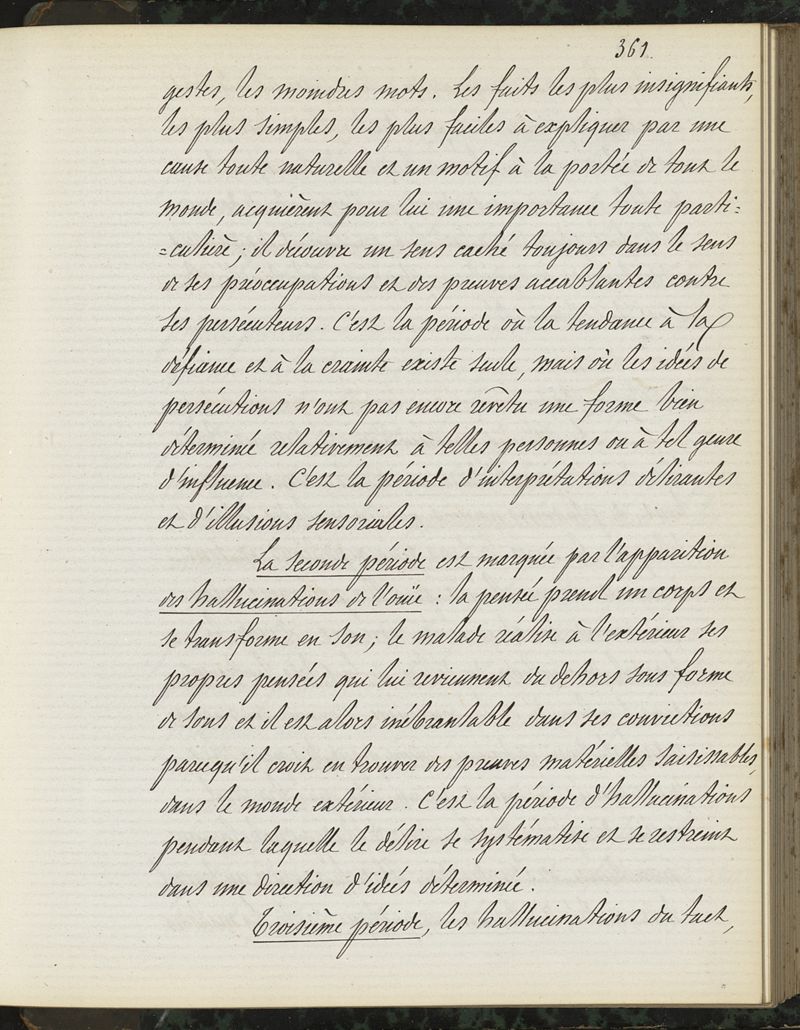 361.
gestes, les moindres mots. Les faits les plus insignifiants,
les plus simples, les plus faciles à expliquer par une
cause toute naturelle et un motif à la portée de tout le
monde, acquièrent pour lui une importance toute parti=
=culière ; il découvre un sens caché toujours dans le sens
de ses préoccupations et des preuves accablantes contre
ses persécuteurs. C'est la période où la tendance à la
défiance et à la crainte existe seule, mais où les idées de
persécutions n'ont pas encore revêtu une forme bien
déterminée relativement à telles personnes ou à tel genre
d'influence. C'est la période d'interprétations délirantes
et d'illusions sensoriales.
La seconde période est marquée par l'apparition
des hallucinations de l'ouïe : la pensée prend un corps et
se transforme en son ; le malade réalise à l'extérieur ses
propres pensées qui lui reviennent du dehors sous forme
de sons et il est alors inébranlable dans ses convictions
parcequ'il croit en trouver des preuves matérielles saisissables,
dans le monde extérieur. C'est la période d'hallucinations
pendant laquelle le délire se systématise et se restreint
dans une direction d'idées déterminée.
Troisième période, les hallucinations du tact,